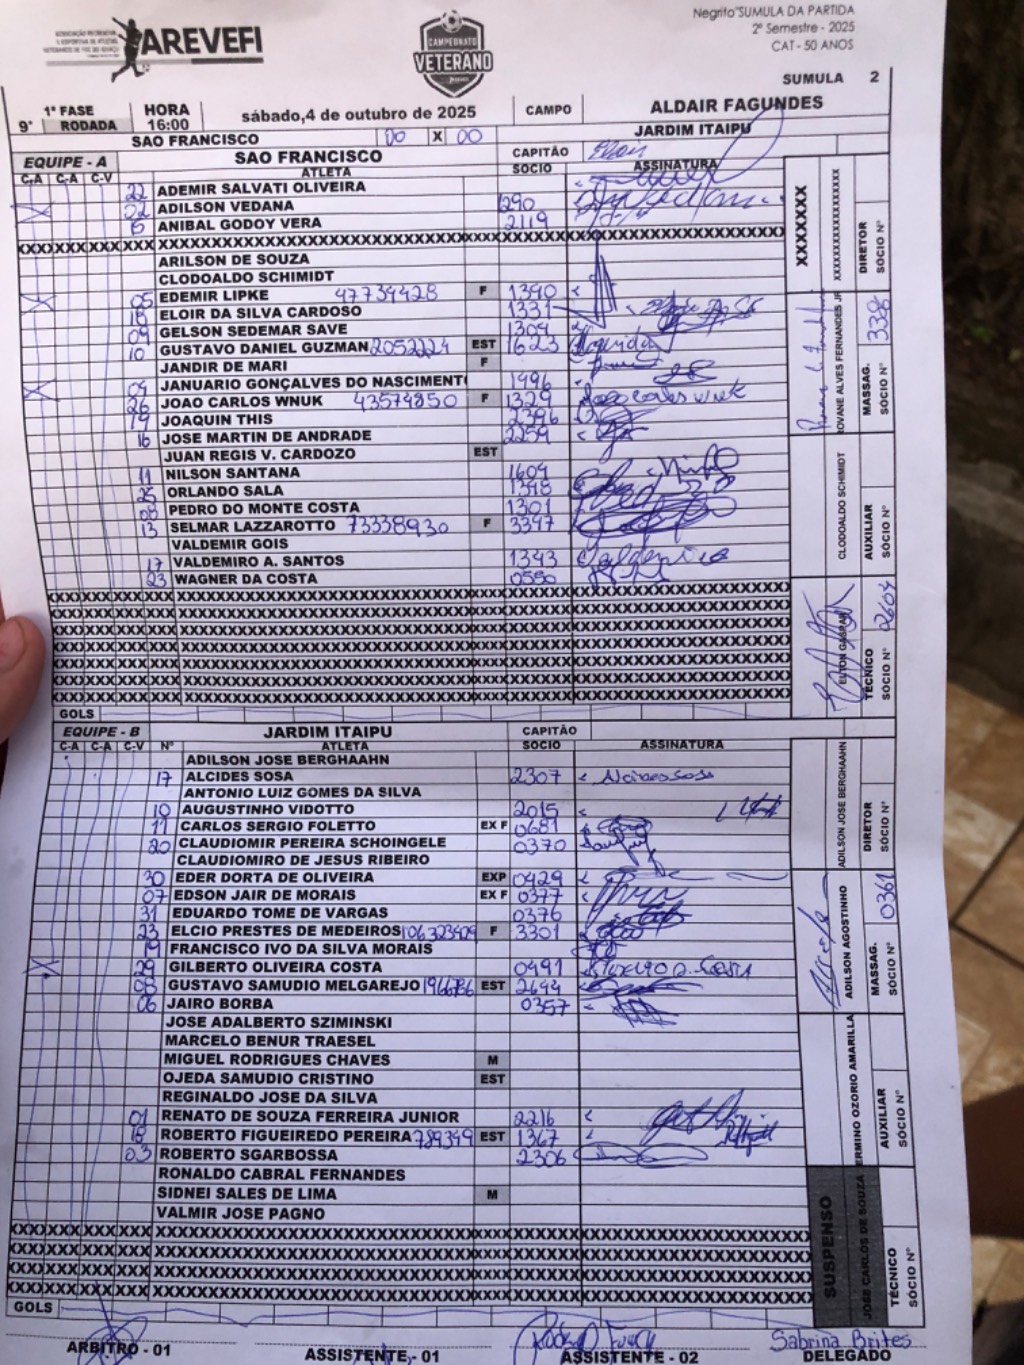 ASSOCIAÇÃO RECREATIVA
E ESPORTIVA DE ATLETAS
VETERANOS DE FOZ DO IGUAÇU
AREVEFI
CAMPEONATO
VETERANO
Negrito"SUMULA DA PARTIDA
2º Semestre - 2025
CAT - 50 ANOS
SUMULA 2
1ª FASE HORA sábado,4 de outubro de 2025 CAMPO ALDAIR FAGUNDES
9ª RODADA 16:00
SAO FRANCISCO 00 X 00 JARDIM ITAIPU
EQUIPE - A SAO FRANCISCO CAPITÃO
C-A C-A C-V ATLETA SOCIO ASSINATURA
22 ADEMIR SALVATI OLIVEIRA
02 ADILSON VEDANA 290
6 ANIBAL GODOY VERA 2119
XXXXXXXXXXXXXXXXXXXXXXXXXXXXXXXXXXXXXXXX
ARILSON DE SOUZA
CLODOALDO SCHIMIDT
05 EDEMIR LIPKE 47734428 F 1390
18 ELOIR DA SILVA CARDOSO 1331
09 GELSON SEDEMAR SAVE 1304
10 GUSTAVO DANIEL GUZMAN 2052224 EST 1623
JANDIR DE MARI F
04 JANUARIO GONÇALVES DO NASCIMENT 1996
26 JOAO CARLOS WNUK 43574850 F 1329 Joao Carlos Wnuk
19 JOAQUIN THIS 2396
16 JOSE MARTIN DE ANDRADE 2259
JUAN REGIS V. CARDOZO EST
11 NILSON SANTANA 1604
25 ORLANDO SALA 1318
08 PEDRO DO MONTE COSTA 1301
13 SELMAR LAZZAROTTO 73338930 F 3347
VALDEMIR GOIS
17 VALDEMIRO A. SANTOS 1343
23 WAGNER DA COSTA 0550
XXXXXXXXXXXXXXXXXXXXXXXXXXXXXXXXXXXXXXXX
XXXXXXXXXXXXXXXXXXXXXXXXXXXXXXXXXXXXXXXX
XXXXXXXXXXXXXXXXXXXXXXXXXXXXXXXXXXXXXXXX
XXXXXXXXXXXXXXXXXXXXXXXXXXXXXXXXXXXXXXXX
XXXXXXXXXXXXXXXXXXXXXXXXXXXXXXXXXXXXXXXX
XXXXXXXXXXXXXXXXXXXXXXXXXXXXXXXXXXXXXXXX
XXXXXXXXXXXXXXXXXXXXXXXXXXXXXXXXXXXXXXXX
GOLS
XXXXXXX
XXXXXXXXXXXXXXXXXX
DIRETOR
SÓCIO Nº
ROVANE ALVES FERNANDES JR
MASSAG.
SÓCIO Nº 338
CLODOALDO SCHIMIDT
AUXILIAR
SÓCIO Nº
ELTON GASPAR
TÉCNICO
SÓCIO Nº 2604
EQUIPE - B JARDIM ITAIPU CAPITÃO
C-A C-A C-V Nº ATLETA SOCIO ASSINATURA
ADILSON JOSE BERGHAAHN
17 ALCIDES SOSA 2307 Alcides Sosa
ANTONIO LUIZ GOMES DA SILVA
10 AUGUSTINHO VIDOTTO 2015
11 CARLOS SERGIO FOLETTO EX F 0681
20 CLAUDIOMIR PEREIRA SCHOINGELE 0370
CLAUDIOMIRO DE JESUS RIBEIRO
30 EDER DORTA DE OLIVEIRA EXP 0429
07 EDSON JAIR DE MORAIS EX F 0377
31 EDUARDO TOME DE VARGAS 0376
23 ELCIO PRESTES DE MEDEIROS 106323409 F 3301
19 FRANCISCO IVO DA SILVA MORAIS
29 GILBERTO OLIVEIRA COSTA 0491
08 GUSTAVO SAMUDIO MELGAREJO EST 2644
06 JAIRO BORBA 0357
JOSE ADALBERTO SZIMINSKI
MARCELO BENUR TRAESEL
MIGUEL RODRIGUES CHAVES M
OJEDA SAMUDIO CRISTINO EST
REGINALDO JOSE DA SILVA
01 RENATO DE SOUZA FERREIRA JUNIOR 2216
18 ROBERTO FIGUEIREDO PEREIRA 789349 EST 1367
03 ROBERTO SGARBOSSA 2306
RONALDO CABRAL FERNANDES
SIDNEI SALES DE LIMA M
VALMIR JOSE PAGNO
XXXXXXXXXXXXXXXXXXXXXXXXXXXXXXXXXXXXXXXX
XXXXXXXXXXXXXXXXXXXXXXXXXXXXXXXXXXXXXXXX
XXXXXXXXXXXXXXXXXXXXXXXXXXXXXXXXXXXXXXXX
XXXXXXXXXXXXXXXXXXXXXXXXXXXXXXXXXXXXXXXX
GOLS
ADILSON JOSE BERGHAAHN
DIRETOR
SÓCIO Nº
ADILSON AGOSTINHO
MASSAG.
SÓCIO Nº 0361
ERMINO OZORIO AMARILLA
AUXILIAR
SÓCIO Nº
SUSPENSO
JOSE CARLOS DE SOUZA
TÉCNICO
SÓCIO Nº
Sabrina Brites
ARBITRO - 01 ASSISTENTE - 01 ASSISTENTE - 02 DELEGADO